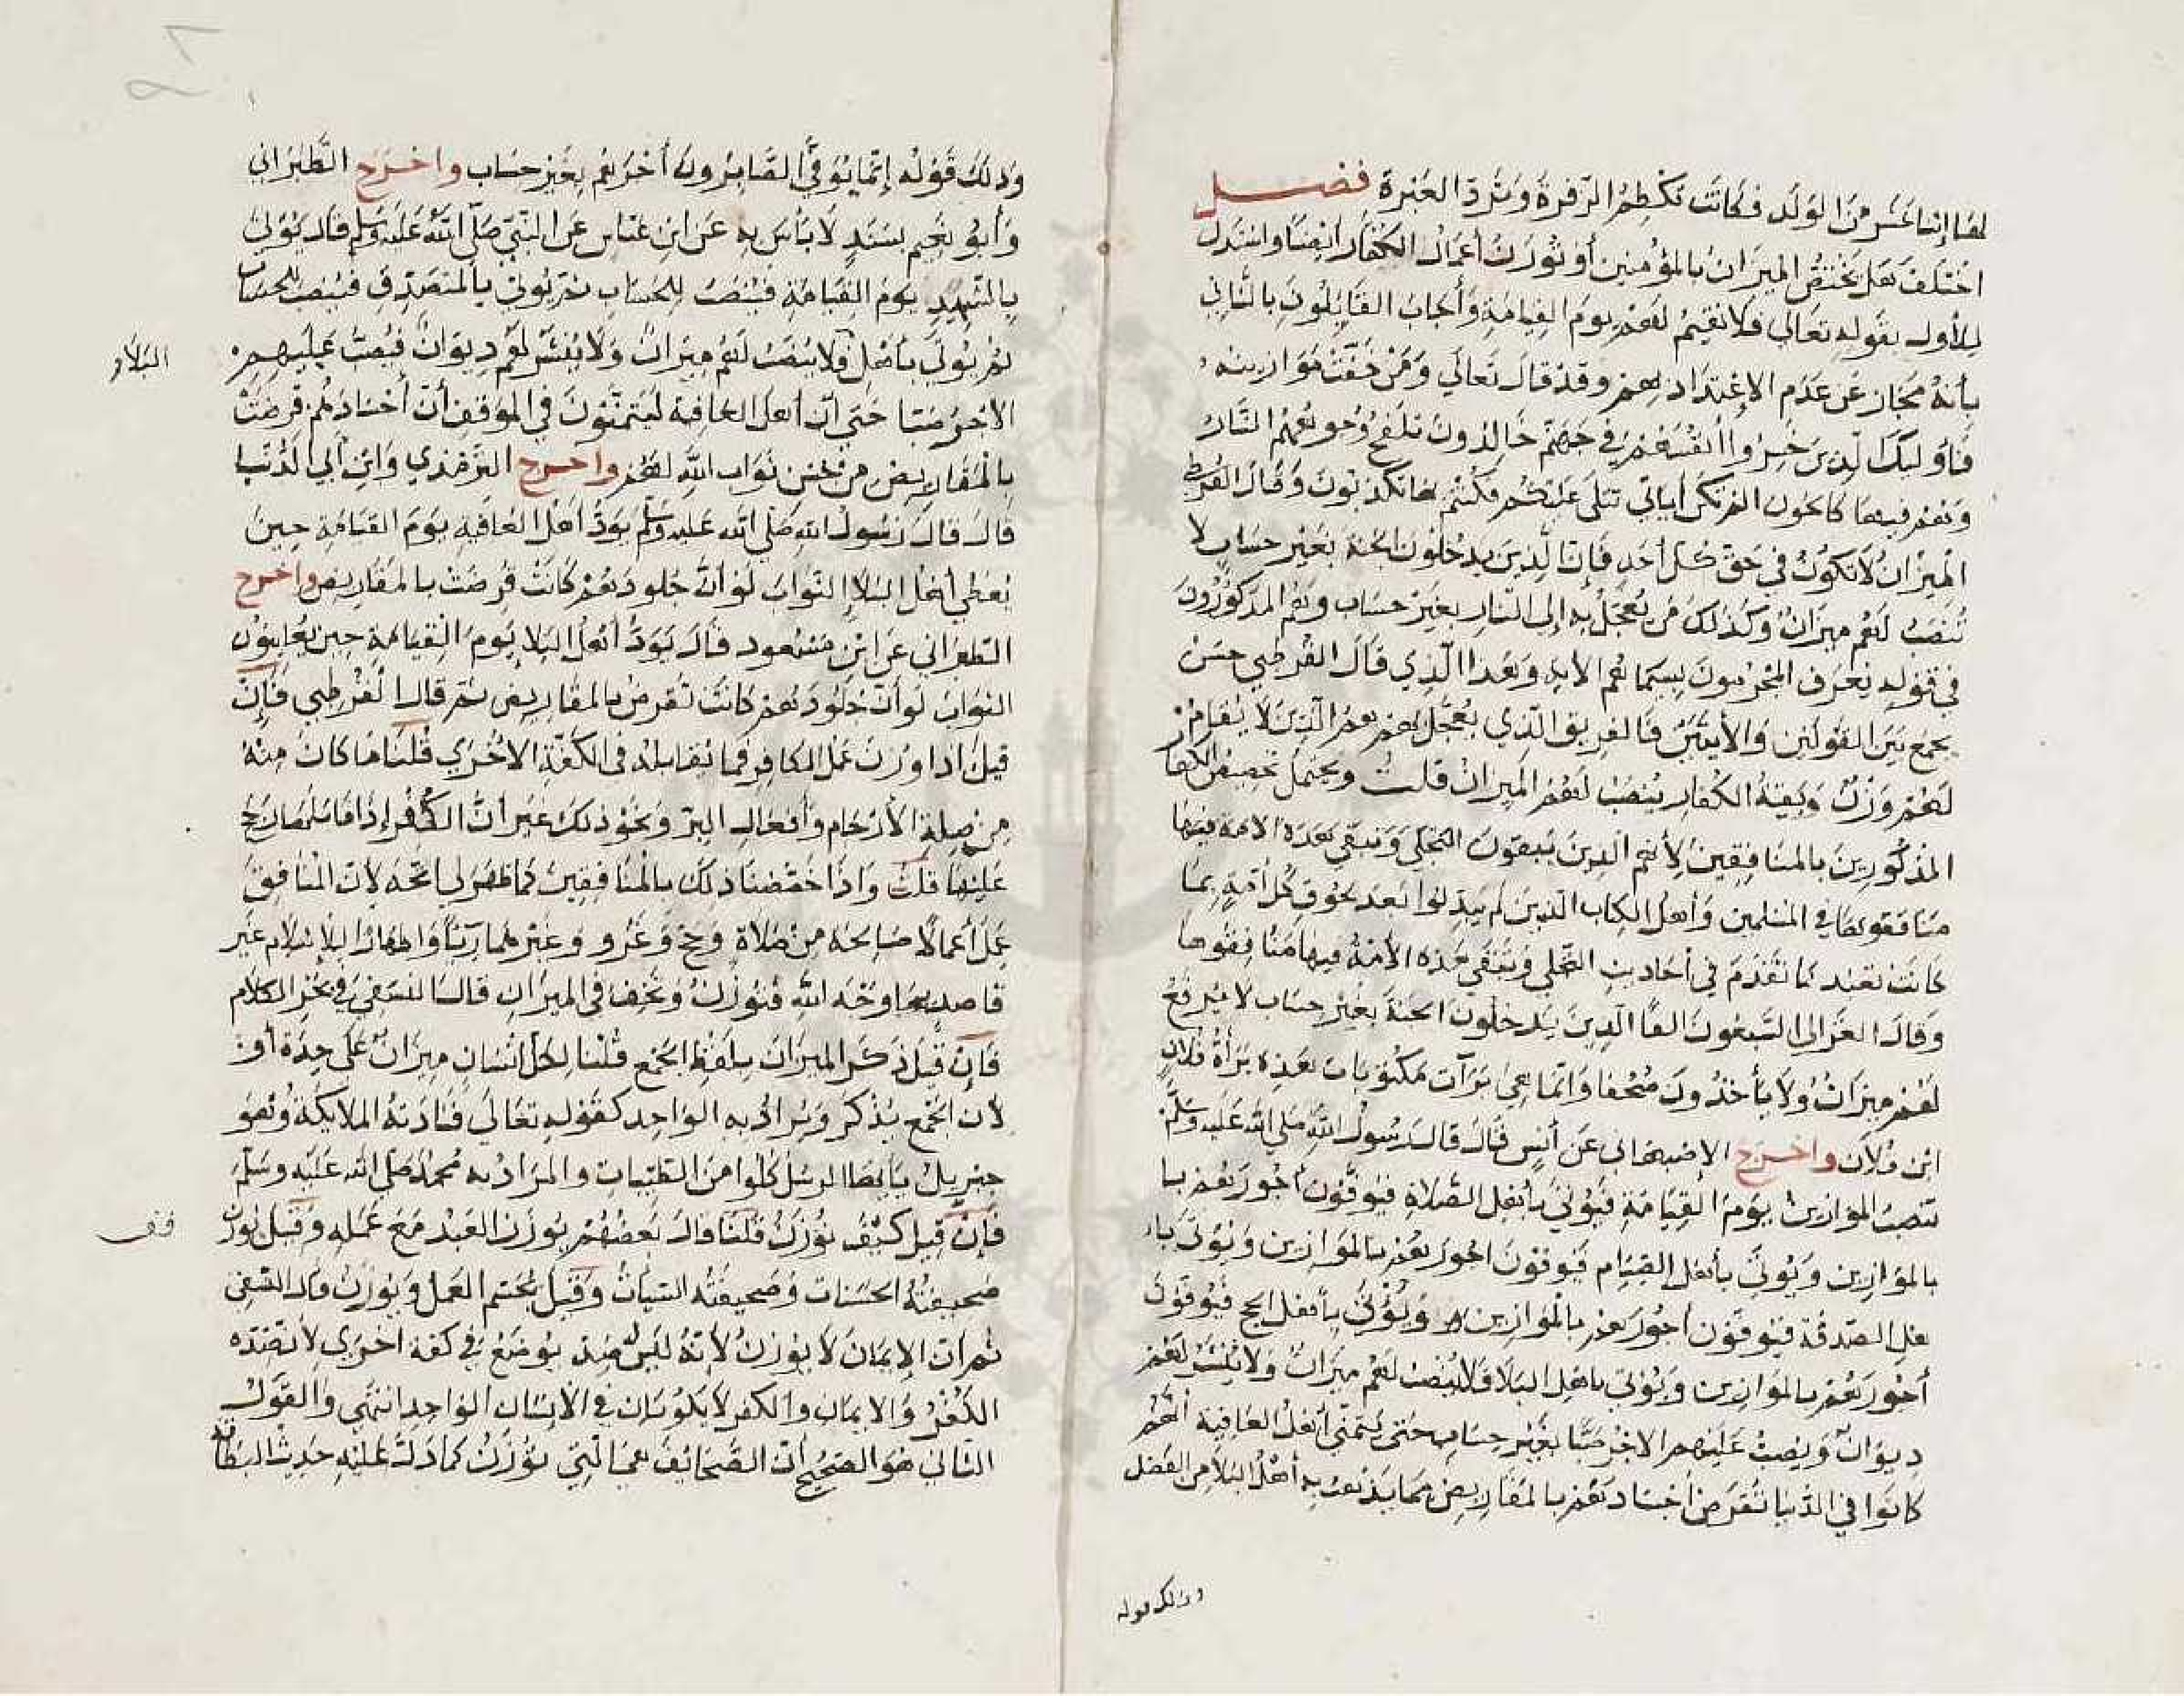 لها اثنا عشر من الولد فكانت تكظم الزفرة وترد العبرة فصل
اختلف هل يختص الميزان بالمؤمنين أو توزن أعمال الكفار أيضا واستدل
للأول بقوله تعالى فلا نقيم لهم يوم القيامة وأجاب القايلون بالثاني
بأنه مجاز عن عدم الاعتداد بهم وقد قال تعالى ومن خفت موازينه
فأوليك الذين خسروا أنفسهم في جهنم خالدون تلفح وجوههم النار
وهم فيها كالحون الم تكن أياتي تتلى عليكم فكنتم بها تكذبون وقال القرطبي
الميزان لا تكون في حق كل أحد فإن الذين يدخلون الجنة بغير حساب لا
تنصب لهم ميزان وكذلك من يعجل به إلى النار بغير حساب وهم المذكورون
في قوله يعرف المجرمون بسيماهم الاية وهذا الذي قال القرطبي حسن
يجمع بين القولين والأيتين فالفريق الذي يعجل بهم هم الذين لا يقام
لهم وزن وبقية الكفار ينصب لهم الميزان قلت ويحتمل تخصيص الكفار
المذكورين بالمنافقين لأنهم الذين يبقون التجلي وتبقى هذه الامة فيها
منافقوها في المسلمين وأهل الكتاب الذين لم يبدلوا بعد لحوق كل أمة بما
كانت تعبد كما تقدم في أحاديث التجلي وتبقى هذه الأمة فيها منافقوها
وقال الغزالي السبعون الفا الذين يدخلون الجنة بغير حساب لا يرفع
لهم ميزان ولا يأخذون صحفا وانما هي برآت مكتوبات هذه برأة فلان
ابن فلان واخرج الاصبهاني عن أنس قال قال رسول الله صلى الله عليه وسلم
تنصب الموازين يوم القيامة فيؤتى بأهل الصلاة فيوفون أجورهم با
بالموازين ويؤتى بأهل الصيام فيوفون اجورهم بالموازين ويؤتى باء
هل الصدقة فيوفون أجورهم بالموازين ويؤتى بأهل الحج فيوفون
أجورهم بالموازين ويؤتى باهل البلا فلا ينصب لهم ميزان ولا ينشر لهم
ديوان ويصب عليهم الاجر صبا بغير حساب حتى يتمنى أهل العافية أنهم
كانوا في الدنيا تقرض أجسادهم بالمقاريض مما يذهب به أهل البلا من الفضل
وذلك قوله
وذلك قوله إنما يوفى الصابرون أجرهم بغير حساب واخرج الطبراني
وأبو نعيم بسند لا بأس به عن ابن عباس عن النبي صلى الله عليه وسلم قال يؤتى
بالشهيد يوم القيامة فينصب للحساب ثم يؤتى بالمتصدق فينصب للحساب
ثم يؤتى بأهل فلا ينصب لهم ميزان ولا ينشر لهم ديوان فيصب عليهم
البلاء
الاجر صبا حتى ان أهل العافية ليتمنون في الموقف أن أجسادهم قرضت
بالمقاريض من حسن ثواب الله لهم واخرج الترمذي وابن أبي الدنيا
قال قال رسول الله صلى الله عليه وسلم يود أهل العافية يوم القيامة حين
يعطى أهل البلا الثواب لو أن جلودهم كانت قرضت بالمقاريض واخرج
الطبراني عن ابن مسعود قال يود أهل البلا يوم القيامة حين يعاينون
الثواب لو أن جلودهم كانت تقرض بالمقاريض ثم قال القرطبي فإن
قيل اذا وزن عمل الكافر فما يقابله في الكفة الاخرى قلنا ما كان منه
من صلة الأرحام وأفعال البر ونحو ذلك غير أن الكفر إذا قابلها رجح
عليها قلت واذا خصصنا ذلك بالمنافقين كما ظهر لي اتجه لان المنافق
عمل أعمالا صالحة من صلاة وحج وغزو وغيرها رياء واظهارا للاسلام غير
قاصد بها وجه الله فتوزن وتخف في الميزان قال النسفي في بحر الكلام
فإن قيل ذكر الميزان بلفظ الجمع قلنا لكل انسان ميزان على حدة أو
لأن الجمع يذكر ويراد به الواحد كقوله تعالى فنادته الملايكة وهو
جبريل يأيها الرسل كلوا من الطيبات والمراد به محمد صلى الله عليه وسلم
فإن قيل كيف توزن قلنا قال بعضهم يوزن العبد مع عمله وقيل توزن
قف
صحيفة الحسنات وصحيفة السيات وقيل يجسم العمل ويوزن قال النسفي
ثمرات الإيمان لا يوزن لأنه ليس له ضد يوضع في كفة اخرى لأن ضده
الكفر والايمان والكفر لا يكونان في الانسان الواحد انتهى والقول
الثاني هو الصحيح أن الصحائف هي التي توزن كما دل عليه حديث البطاقة